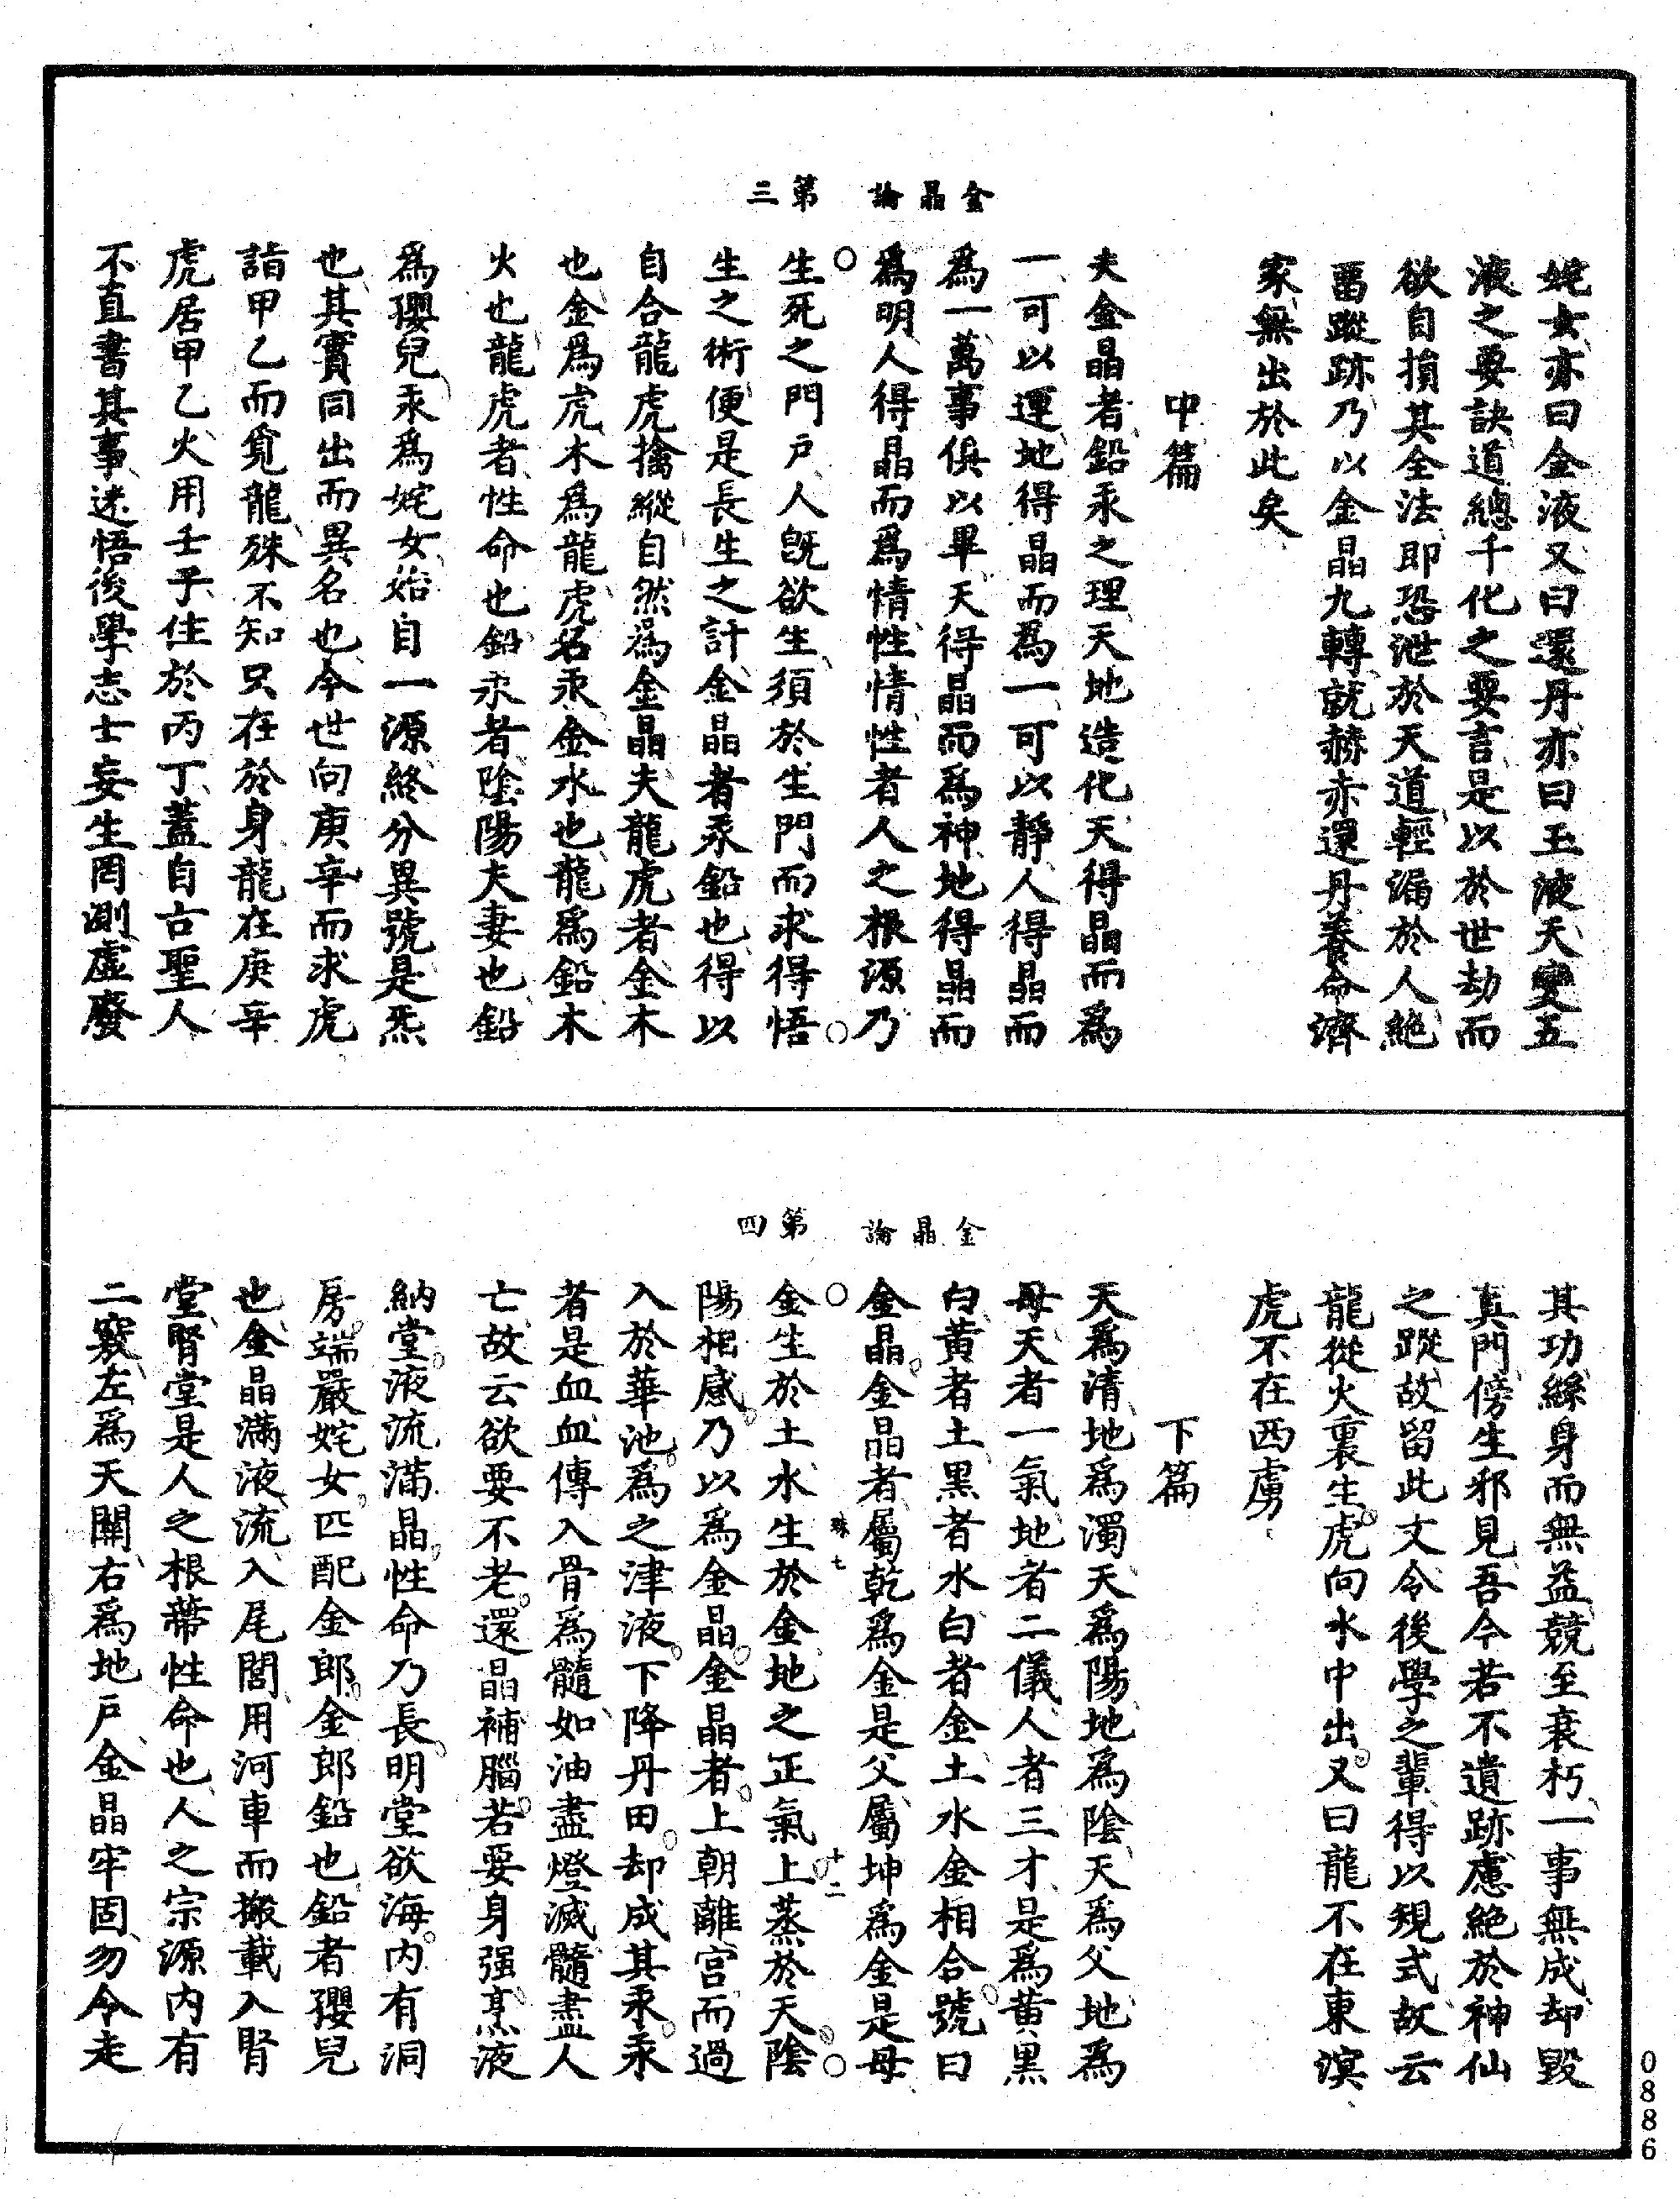 姹女亦曰金液又曰還丹亦曰玉液天變五
液之要訣道總千化之要言是以於世劫而
欲自損其全法即恐泄於天道輕漏於人絶
畱蹤跡乃以金晶九轉就赫赤還丹養命濟
家無出於此矣
中篇
夫金晶者鉛汞之理天地造化天得晶而為
一可以運地得晶而為一可以靜人得晶而
為一萬事俱以畢天得晶而為神地得晶而
為明人得晶而為情性情性者人之根源乃
金晶論 第三
生死之門戶人旣欲生須於生門而求得悟
生之術便是長生之計金晶者汞鉛也得以
自合龍虎擒縱自然為金晶夫龍虎者金木
也金為虎木為龍虎名汞金水也龍為鉛木
火也龍虎者性命也鉛汞者陰陽夫妻也鉛
為孾兒汞為姹女始自一源終分異號是炁
也其實同出而異名也今世向庚辛而求虎
詣甲乙而覓龍殊不知只在於身龍在庚辛
虎居甲乙火用壬子住於丙丁蓋自古聖人
不直書其事迷悟後學志士妄生罔測虛廢
其功繇身而無益競至衰朽一事無成却毀
真門傍生邪見吾今若不遺跡慮絶於神仙
之蹤故留此文令後學之輩得以規式故云
龍從火裏生虎向水中出又曰龍不在東溟
虎不在西虜
下篇
天為清地為濁天為陽地為陰天為父地為
母天者一氣地者二儀人者三才是為黃黑
白黃者土黑者水白者金土水金相合號曰
金晶金晶者屬乾為金是父屬坤為金是母
金晶論 第四
珠七 十二
金生於土水生於金地之正氣上蒸於天陰
陽相感乃以為金晶金晶者上朝離宮而過
入於華池為之津液下降丹田却成其汞汞
者是血血傳入骨為髓如油盡燈滅髓盡人
亡故云欲要不老還晶補腦若要身强烹液
納堂液流滿晶性命乃長明堂欲海内有洞
房端嚴姹女匹配金郎金郎鉛也鉛者孾兒
也金晶滿液流入尾閭用河車而搬載入腎
堂腎堂是人之根蔕性命也人之宗源内有
二竅左為天關右為地戶金晶牢固勿令走
0886